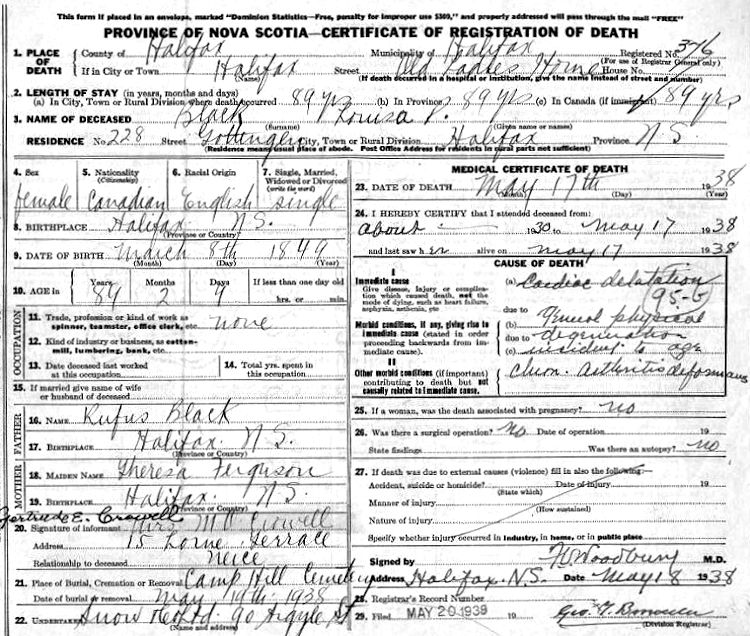 This form if placed in an envelope, marked "Dominion Statistics—Free, penalty for improper use $300," and properly addressed will pass through the mail "FREE"
PROVINCE OF NOVA SCOTIA—CERTIFICATE OF REGISTRATION OF DEATH
1. PLACE OF DEATH County of Halifax Municipality of Halifax Registered No. 376
(For use of Registrar General only)
If in City or Town Halifax Street Old Ladies Home House No.
(Name) (If death occurred in a hospital or institution, give the name instead of street and number)
2. LENGTH OF STAY (in years, months and days)
(a) In City, Town or Rural Division where death occurred 89 yrs (b) In Province 89 yrs (c) In Canada (if immigrant) 89 yrs
3. NAME OF DECEASED Black Louisa
(Surname) (Given name or names)
RESIDENCE No. 228 Street Gottingen City, Town or Rural Division Halifax Province N S
(Residence means usual place of abode. Post Office Address for residents in rural parts not sufficient)
4. Sex female
5. Nationality (Citizenship) Canadian
6. Racial Origin English
7. Single, Married, Widowed or Divorced (write the word) single
8. BIRTHPLACE Halifax N S.
(Province or Country)
9. DATE OF BIRTH March 8th 1849
(Month) (Day) (Year)
10. AGE in Years 89 Months 2 Days 9 If less than one day old hrs. or min.
OCCUPATION
11. Trade, profession or kind of work as spinner, teamster, office clerk, etc. none
12. Kind of industry or business, as cotton-mill, lumbering, bank, etc.
13. Date deceased last worked at this occupation
14. Total yrs. spent in this occupation
15. If married give name of wife or husband of deceased
FATHER
16. NAME Rufus Black
17. BIRTHPLACE Halifax N.S.
(Province or Country)
MOTHER
18. MAIDEN NAME Theresa Ferguson
19. BIRTHPLACE Halifax. N S.
(Province or Country)
Gertrude E. Crowell
20. Signature of informant Mrs M Crowell
Address 15 Lorne Terrace
Relationship to deceased neice
21. Place of Burial, Cremation or Removal Camp Hill Cemetery
Date of burial or removal May 19th 1938
22. UNDERTAKER Snow 90 Argyle St
(Name and address)
MEDICAL CERTIFICATE OF DEATH
23. DATE OF DEATH May 17th 1938
(Month) (Day) (Year)
24. I HEREBY CERTIFY that I attended deceased from:
about 1930 to May 17 1938
and last saw her alive on may 17 1938
CAUSE OF DEATH
I
Immediate cause
Give disease, injury or complication which caused death, not the mode of dying, such as heart failure, asphyxia, asthenia, etc
(a) Cardiac delatation
95-B
due to
Morbid conditions, if any, giving rise to immediate cause (stated in order proceeding backwards from immediate cause).
(b) General physical
due to degeneration
(c) incident to age
II
Other morbid conditions (if important) contributing to death but not causally related to immediate cause.
Chron. arthritis deformans
25. If a woman, was the death associated with pregnancy? no
26. Was there a surgical operation? No Date of operation 19
State findings Was there an autopsy? no
27. If death was due to external causes (violence) fill in also the following:—
Accident, suicide or homicide? Date of injury 19
(State which)
Manner of injury
(How sustained)
Nature of injury
Specify whether injury occurred in industry, in home, or in public place
Signed by Woodbury M.D.
Address Halifax. N.S. Date May 18 1938
28. Registrar's Record Number
29. Filed MAY 20 1938 19 Geo.
(Division Registrar)